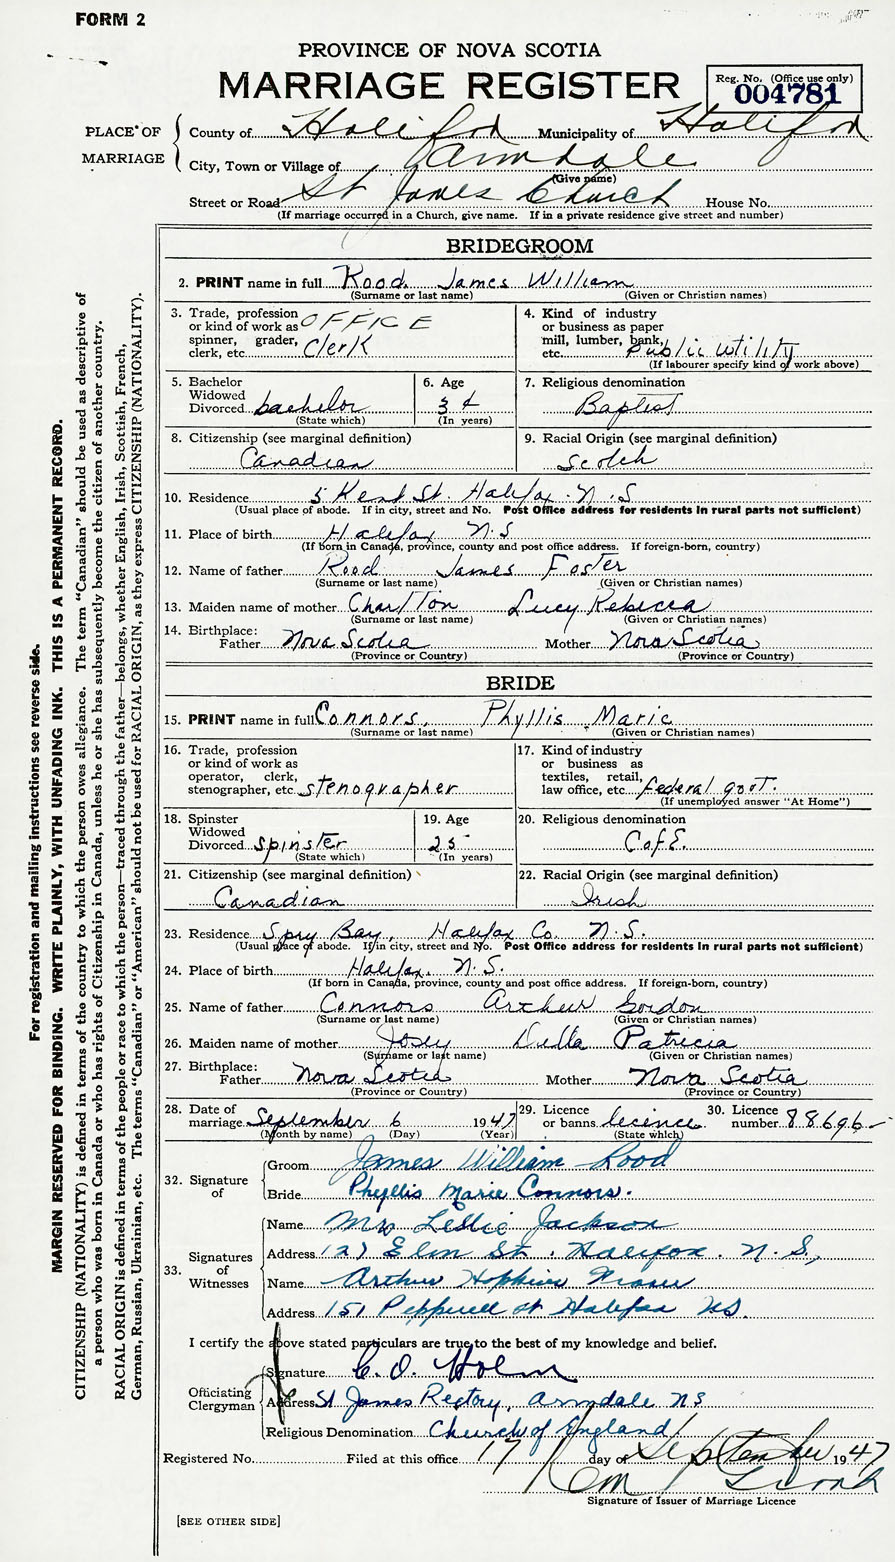 FORM 2
PROVINCE OF NOVA SCOTIA
MARRIAGE REGISTER
Reg. No. (Office use only)
004781
PLACE OF MARRIAGE
County of Halifax Municipality of Halifax
City, Town or Village of Armdale
(Give name)
Street or Road St James Church House No.
(If marriage occurred in a Church, give name. If in a private residence give street and number)
BRIDEGROOM
2. PRINT name in full Rood James William
(Surname or last name) (Given or Christian names)
3. Trade, profession or kind of work as spinner, grader, clerk, etc. OFFICE Clerk
4. Kind of industry or business as paper mill, lumber, bank, etc. public utility
(If labourer specify kind of work above)
5. Bachelor Widowed Divorced bachelor
(State which)
6. Age 34
(In years)
7. Religious denomination
Baptist
8. Citizenship (see marginal definition)
Canadian
9. Racial Origin (see marginal definition)
Scotch
10. Residence 5 Kent St. Halifax N.S
(Usual place of abode. If in city, street and No. Post Office address for residents in rural parts not sufficient)
11. Place of birth Halifax N.S
(If born in Canada, province, county and post office address. If foreign-born, country)
12. Name of father Rood James Foster
(Surname or last name) (Given or Christian names)
13. Maiden name of mother Charlton Lucy Rebecca
(Surname or last name) (Given or Christian names)
14. Birthplace:
Father Nova Scotia Mother Nova Scotia
(Province or Country) (Province or Country)
BRIDE
15. PRINT name in full Connors, Phyllis Marie
(Surname or last name) (Given or Christian names)
16. Trade, profession or kind of work as operator, clerk, stenographer, etc. stenographer
17. Kind of industry or business as textiles, retail, law office, etc. federal govt.
(If unemployed answer "At Home")
18. Spinster Widowed Divorced spinster
(State which)
19. Age 25
(In years)
20. Religious denomination
C of E.
21. Citizenship (see marginal definition)
Canadian
22. Racial Origin (see marginal definition)
Irish
23. Residence Spry Bay, Halifax Co. N.S.
(Usual place of abode. If in city, street and No. Post Office address for residents in rural parts not sufficient)
24. Place of birth Halifax. N.S.
(If born in Canada, province, county and post office address. If foreign-born, country)
25. Name of father Connors Arthur Gordon
(Surname or last name) (Given or Christian names)
26. Maiden name of mother Josey Della Patricia
(Surname or last name) (Given or Christian names)
27. Birthplace:
Father Nova Scotia Mother Nova Scotia
(Province or Country) (Province or Country)
28. Date of marriage September 6 1947
(Month by name) (Day) (Year)
29. Licence or banns licence
(State which)
30. Licence number 88696
32. Signature of
Groom James William Rood
Bride Phyllis Marie Connors.
33. Signatures of Witnesses
Name Mrs Leslie Jackson
Address 127 Elm St. Halifax. N.S.,
Name Arthur Hopkins Fraser
Address 151 Pepperell St Halifax NS.
I certify the above stated particulars are true to the best of my knowledge and belief.
Officiating Clergyman
Signature C. O. Holm
Address St James Rectory, Armdale NS
Religious Denomination Church of England
Registered No. Filed at this office 17 day of September 1947
Signature of Issuer of Marriage Licence
[SEE OTHER SIDE]
For registration and mailing instructions see reverse side.
MARGIN RESERVED FOR BINDING. WRITE PLAINLY, WITH UNFADING INK. THIS IS A PERMANENT RECORD.
CITIZENSHIP (NATIONALITY) is defined in terms of the country to which the person owes allegiance. The term "Canadian" should be used as descriptive of
a person who was born in Canada or who has rights of Citizenship in Canada, unless he or she has subsequently become the citizen of another country.
RACIAL ORIGIN is defined in terms of the people or race to which the person—traced through the father—belongs, whether English, Irish, Scottish, French,
German, Russian, Ukrainian, etc. The terms "Canadian" or "American" should not be used for RACIAL ORIGIN, as they express CITIZENSHIP (NATIONALITY).